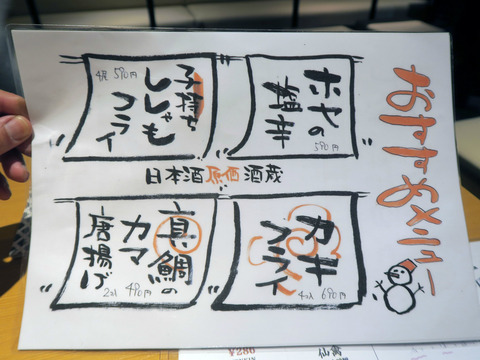 おすすめメニュー
ホヤの
塩辛
590円
子持ち
ししゃも
フライ
4尾 590円
日本酒原価酒蔵
カキ
フライ
4コ入 690円
真鯛の
カマ
唐揚げ
2コ入 490円
¥280
仙禽